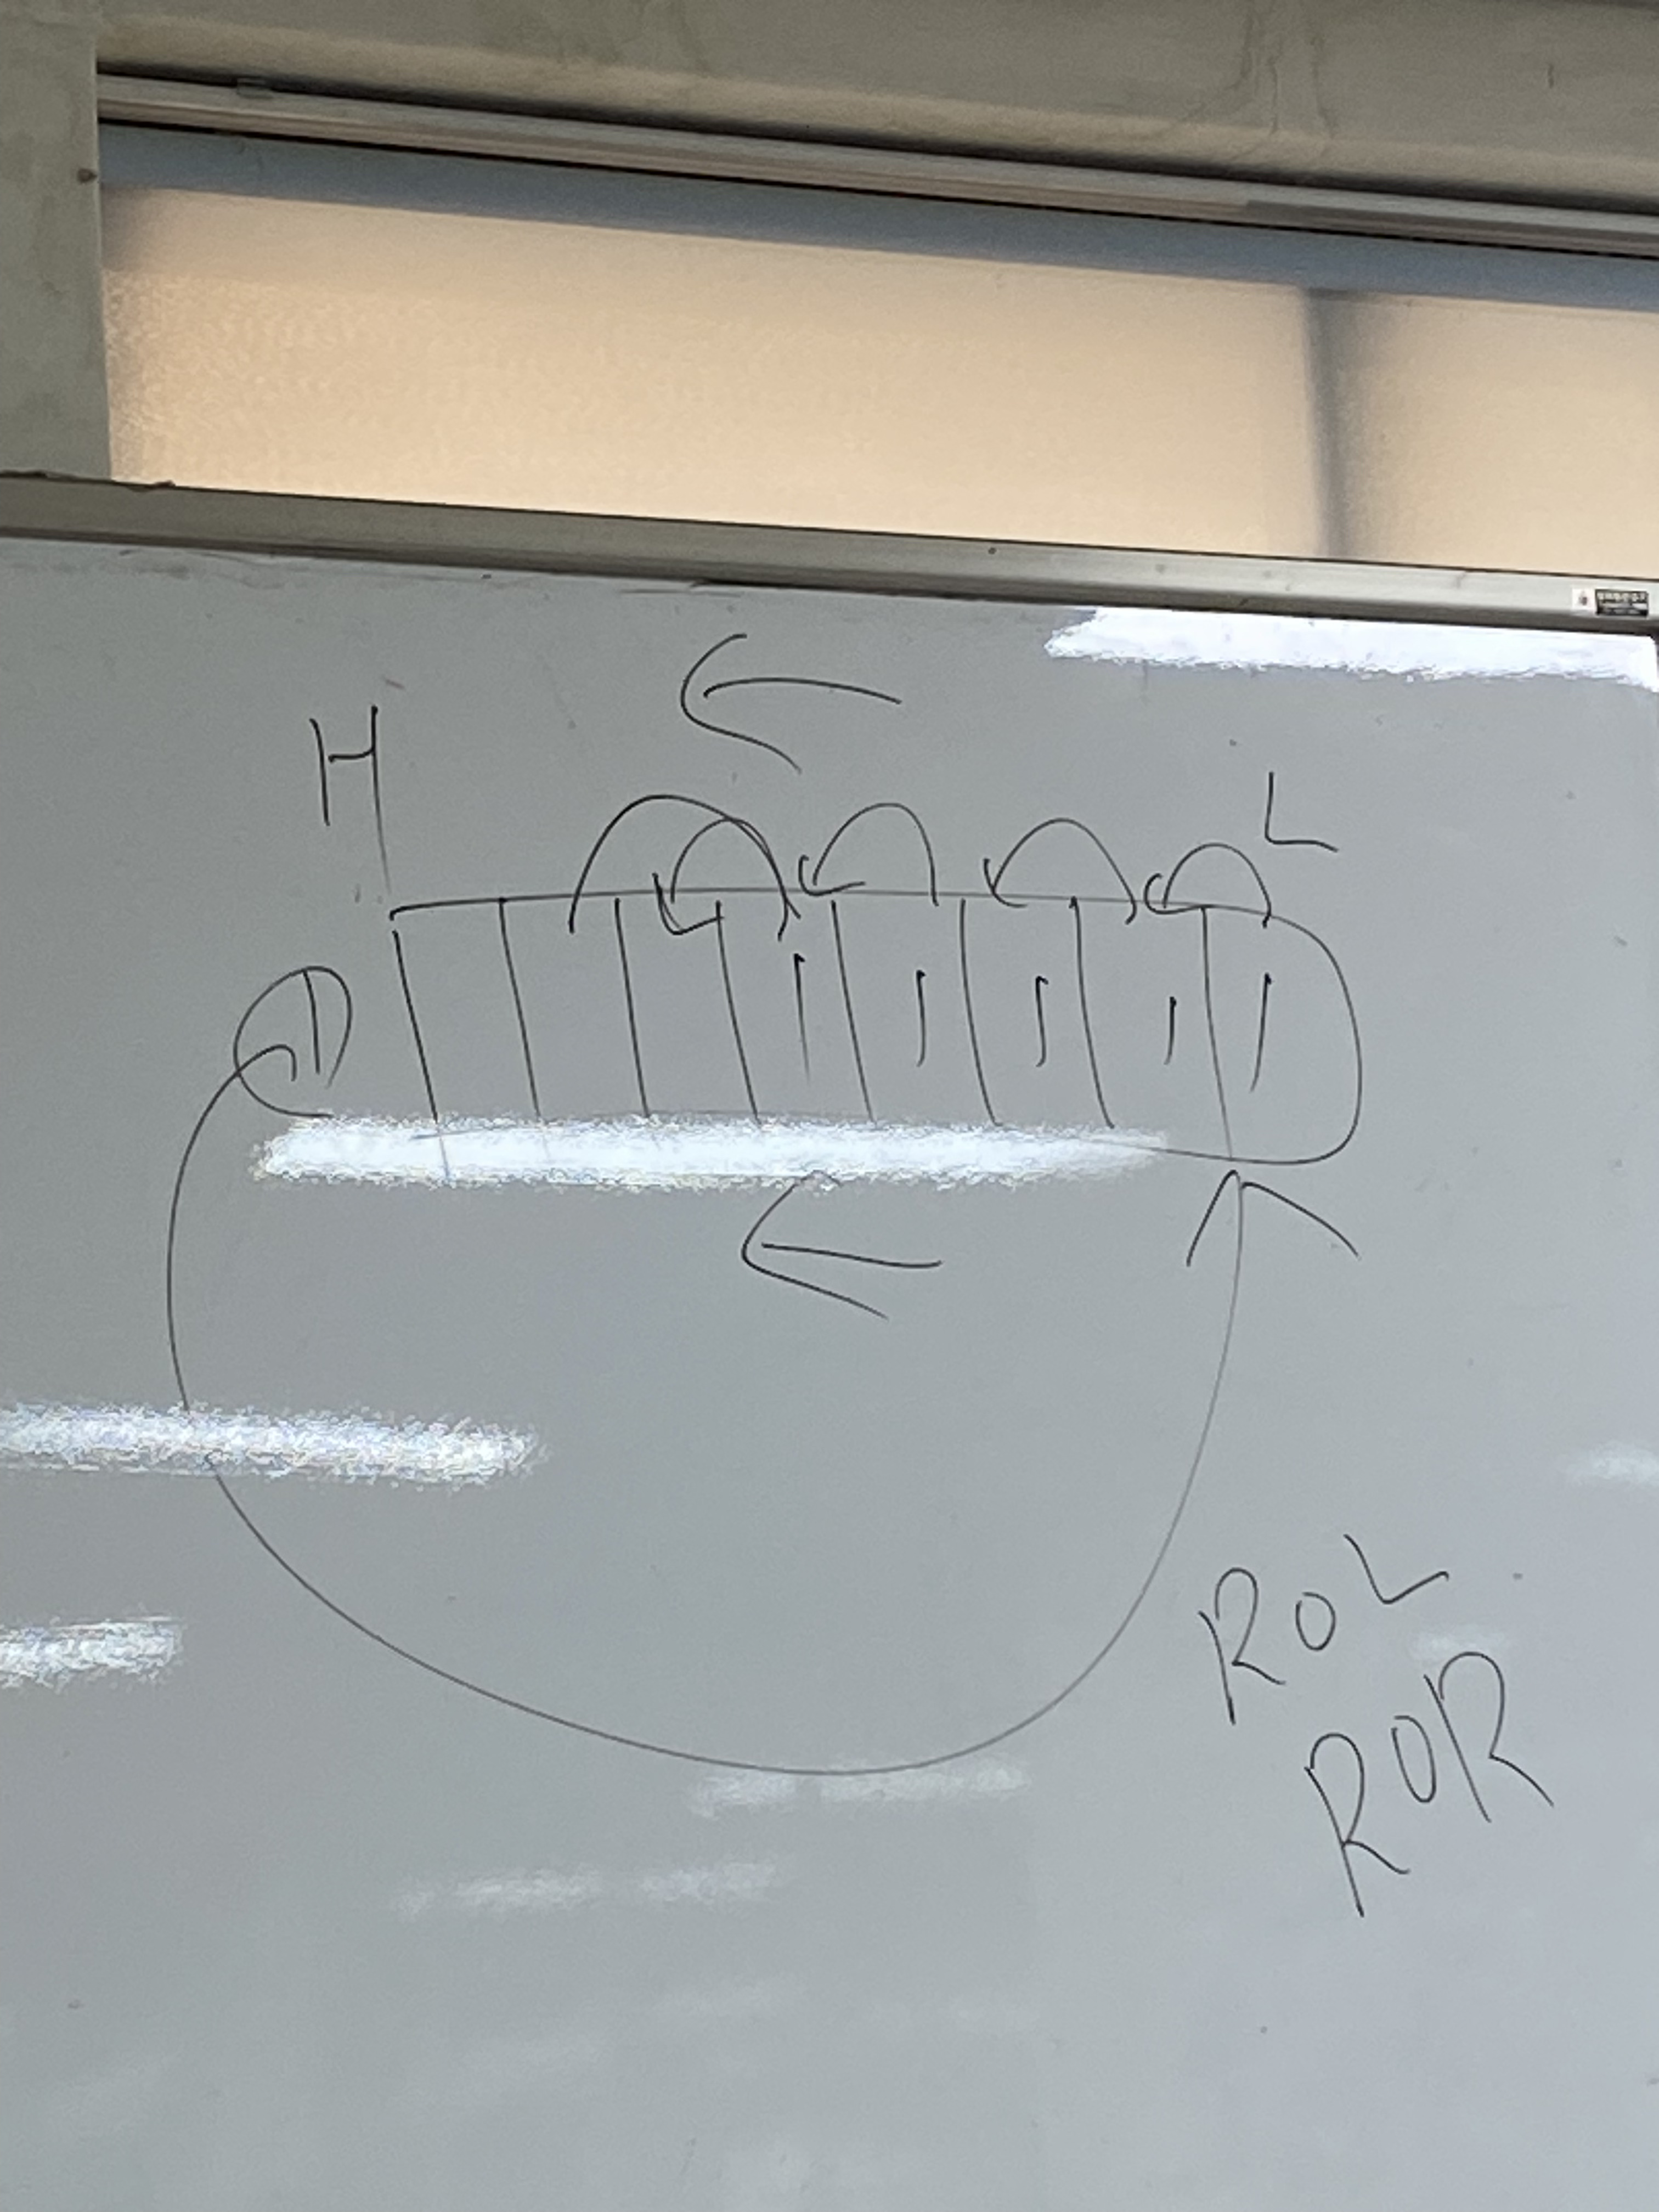 H
L
1
1 1 1 1 1
ROL
ROR